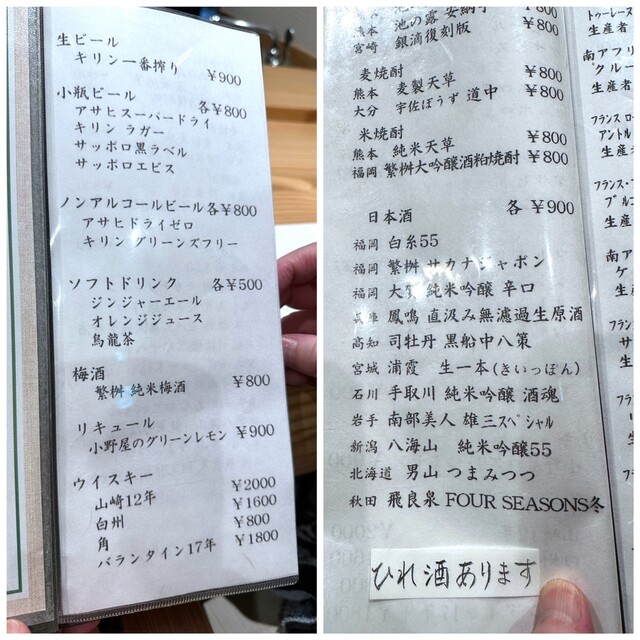 生ビール
キリン一番搾り ¥900
小瓶ビール 各¥800
アサヒスーパードライ
キリン ラガー
サッポロ黒ラベル
サッポロエビス
ノンアルコールビール 各¥800
アサヒドライゼロ
キリン グリーンズフリー
ソフトドリンク 各¥500
ジンジャーエール
オレンジジュース
烏龍茶
梅酒
繁桝 純米梅酒 ¥800
リキュール
小野屋のグリーンレモン ¥900
ウイスキー
山崎12年 ¥2000
白州 ¥1600
角 ¥800
バランタイン17年 ¥1800
熊本 池の露
宮崎 銀滴復刻版 ¥800
麦焼酎
熊本 麦製天草 ¥800
大分 宇佐ぼうず 道中 ¥800
米焼酎
熊本 純米天草 ¥800
福岡 繁桝大吟醸酒粕焼酎 ¥800
日本酒 各 ¥900
福岡 白糸55
福岡 繁桝 サカナジャポン
福岡 純米吟醸 辛口
兵庫 鳳鳴 直汲み無濾過生原酒
高知 司牡丹 黒船中八策
宮城 浦霞 生一本(きいっぽん)
石川 手取川 純米吟醸 酒魂
岩手 南部美人 雄三スペシャル
新潟 八海山 純米吟醸55
北海道 男山 つまみつつ
秋田 飛良泉 FOUR SEASONS冬
ひれ酒あります
生産者
南アフリ
グルー
生産者
フランス ロ
アントル
生産者
フランス・コ
ブルコ
生産者
南ア
ケ
生産
フランス
サ
生産